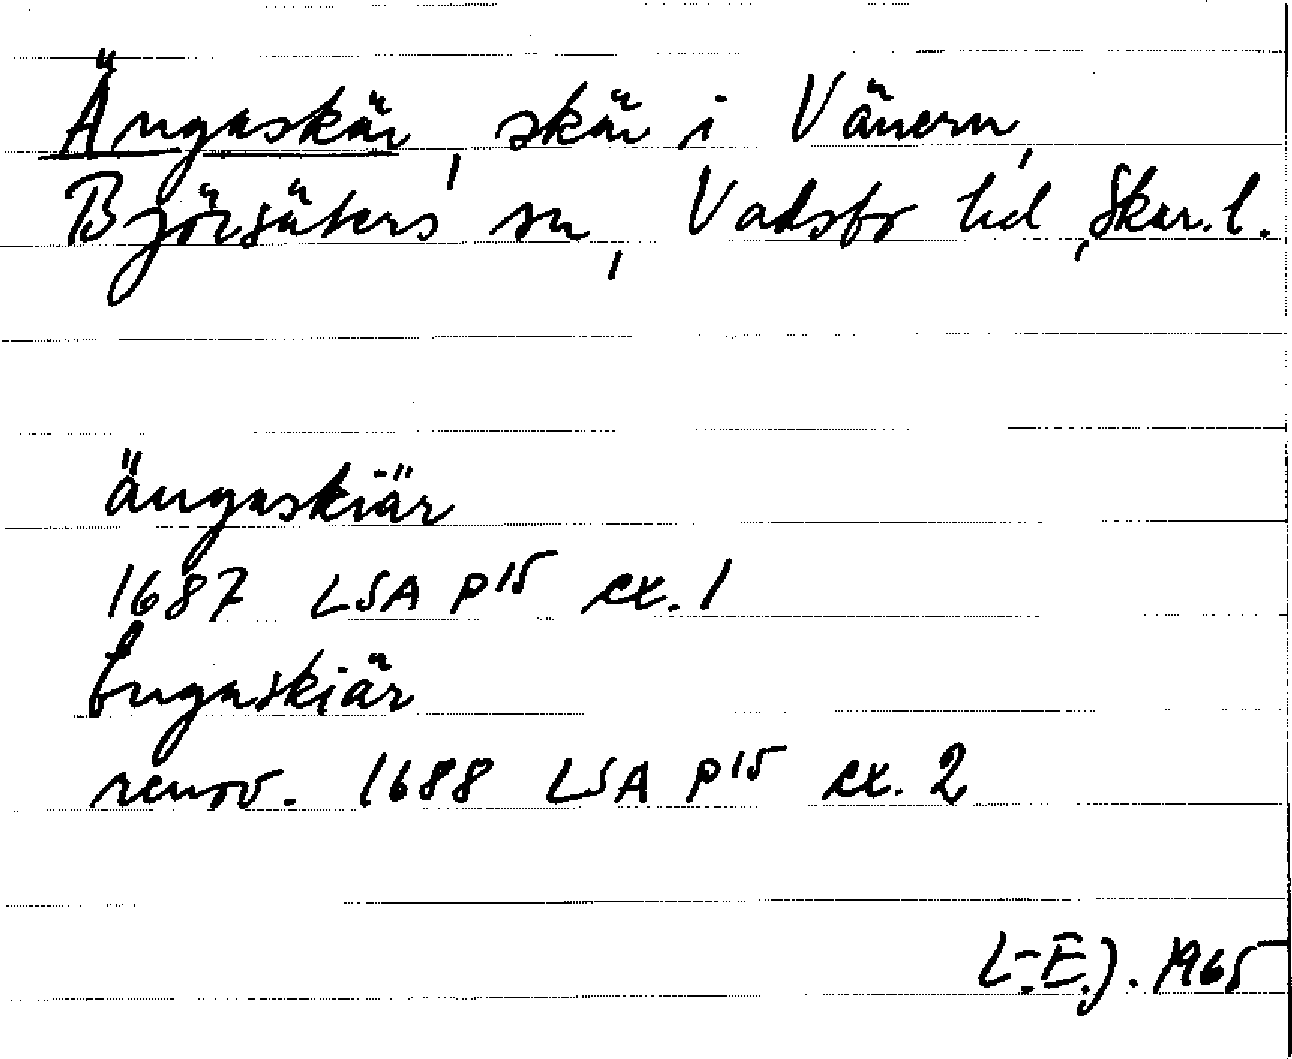 Ängaskär, skär i Vänern,
Björsäters sn, Vadsbo hd, Skar. l.
ängaskiär
1687 LSA P15 ex. 1
Engaskiär
renov. 1688 LSA P15 ex. 2
L-E.J. 1965